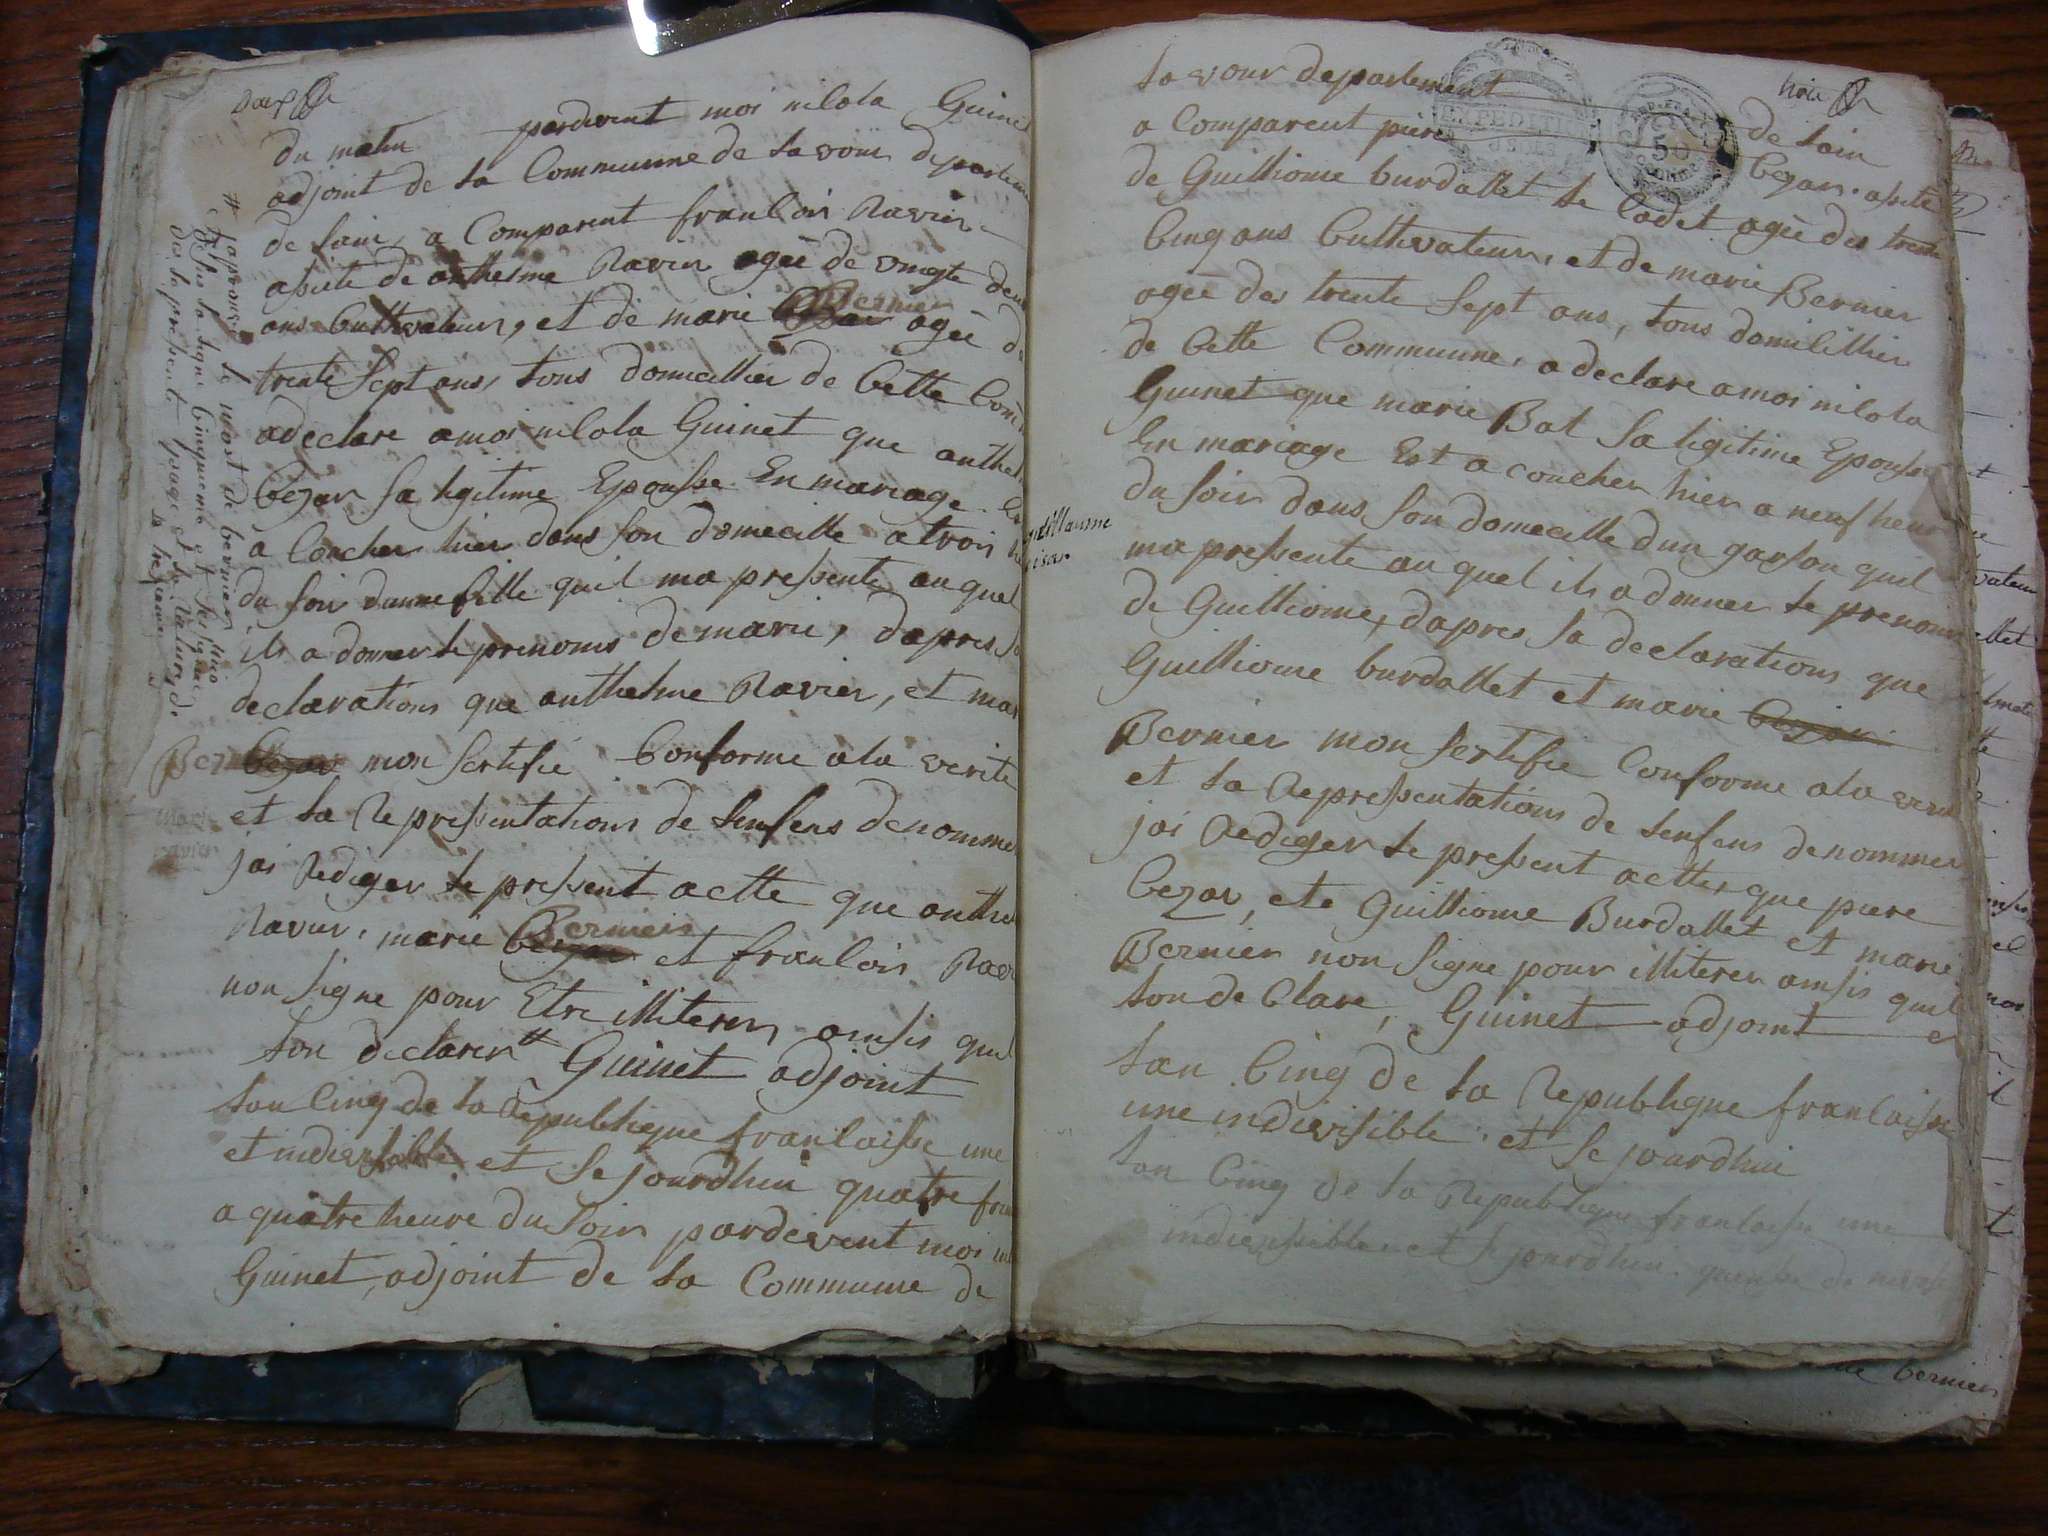 du matin pardevent moi nilola Guinet
adjoint de la Communne de lavour departem
de lain, a Comparent franlois Ravier
asiste de anthelme Ravier agée de vingte deux
ans Cultivateur, et de marie Bernier agée de
trente sept ans, tous domecillier de Cette Com
adeclare amoi nilola Guinet que anthel
bezar sa ligitime Epousse En mariage Es
a Coucher hier dans son domecille a trois
du soir dunne fille quil ma pressente au quel
ils a donner le prenoms de marie, dapres sa
declarations que anthelme Ravier, et mar
Ber bezar mon sertifié Conforme ala verite
et la Repressentations de lenfens denommer
jai Rediger le pressent actte que anthe
Ravier, marie bezar Bernier et franlois Rav
non signe pour Etre illiterer ainsis quil
lon declarer # Guinet adjoint
lan Cinq de la Republique franlaisse une
et indivisible et se jourdhui quatre
a quatre heure du soir pardevent moi
Guinet, adjoint de la Commune de
# Japrouve le most de bernier
marie
ravier
lavour departement de lain
a Comparent piere bezar. asiste
de Guilliome burdallet le Cadet agée des trente
Cinq ans Cultivateur, et de marie Bernier
agée des trente sept ans, tous domicillier
de Cette Communne, a declare a moi nilola
Guinet que marie Bat sa ligitime Epousse
En mariage Est a coucher hier a neuf heur
du soir dans son domecille dun garson quil
ma pressente au quel ils a donner le prenom
de Guilliome, dapres sa declarations que
Guilliome burdallet et marie bezar
Bernier mon sertifie Conforme ala verit
et la Repressentations de lenfens denommer
jai Rediger le pressent actte, que piere
bezar, ete Guilliome Burdallet et marie
Bernier non signe pour illiterer ainsis quil
lon de Clare, Guinet adjoint
lan Cinq de la Republique franlaisse
une indivisible. et se jourdhui
lan Cinq de la Republique franlaisse une
indivissible. et se jourdhui. quinse de
guillaume